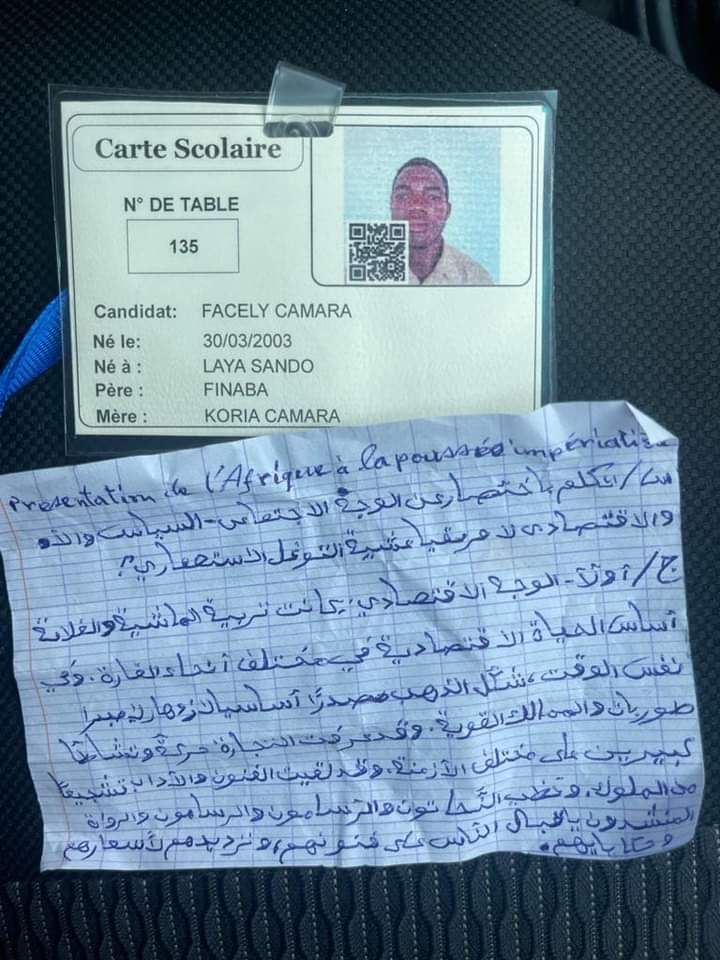 Carte Scolaire
N° DE TABLE
135
Candidat: FACELY CAMARA
Né le: 30/03/2003
Né à : LAYA SANDO
Père : FINABA
Mère : KORIA CAMARA
Présentation de l'Afrique à la poussée impérialiste
س/ اتكلم باختصار عن الوجه الاجتماعى - السياسي والأو
والاقتصادى لافريقيا عشية التوغل الاستعماري؟
ج/ أولا - الوجه الاقتصادي: كانت تربية الماشية والفلاحة
أساس الحياة الاقتصادية في مختلف أنحاء القارة. وفي
نفس الوقت، شكّل الذهب مصدرًا أساسيا لازدهار
طوريات والممالك القوية. وقد عرفت التجارة حركة ونشاطًا
كبيرين على مختلف الأزمنة. وقد لقيت الفنون والآداب تشجيعًا
من الملوك. النّحاتون والرسامون والرواة
المنشدون بإقبال النّاس على فنونهم، وترديدهم لأشعارهم
وحكاياتهم.